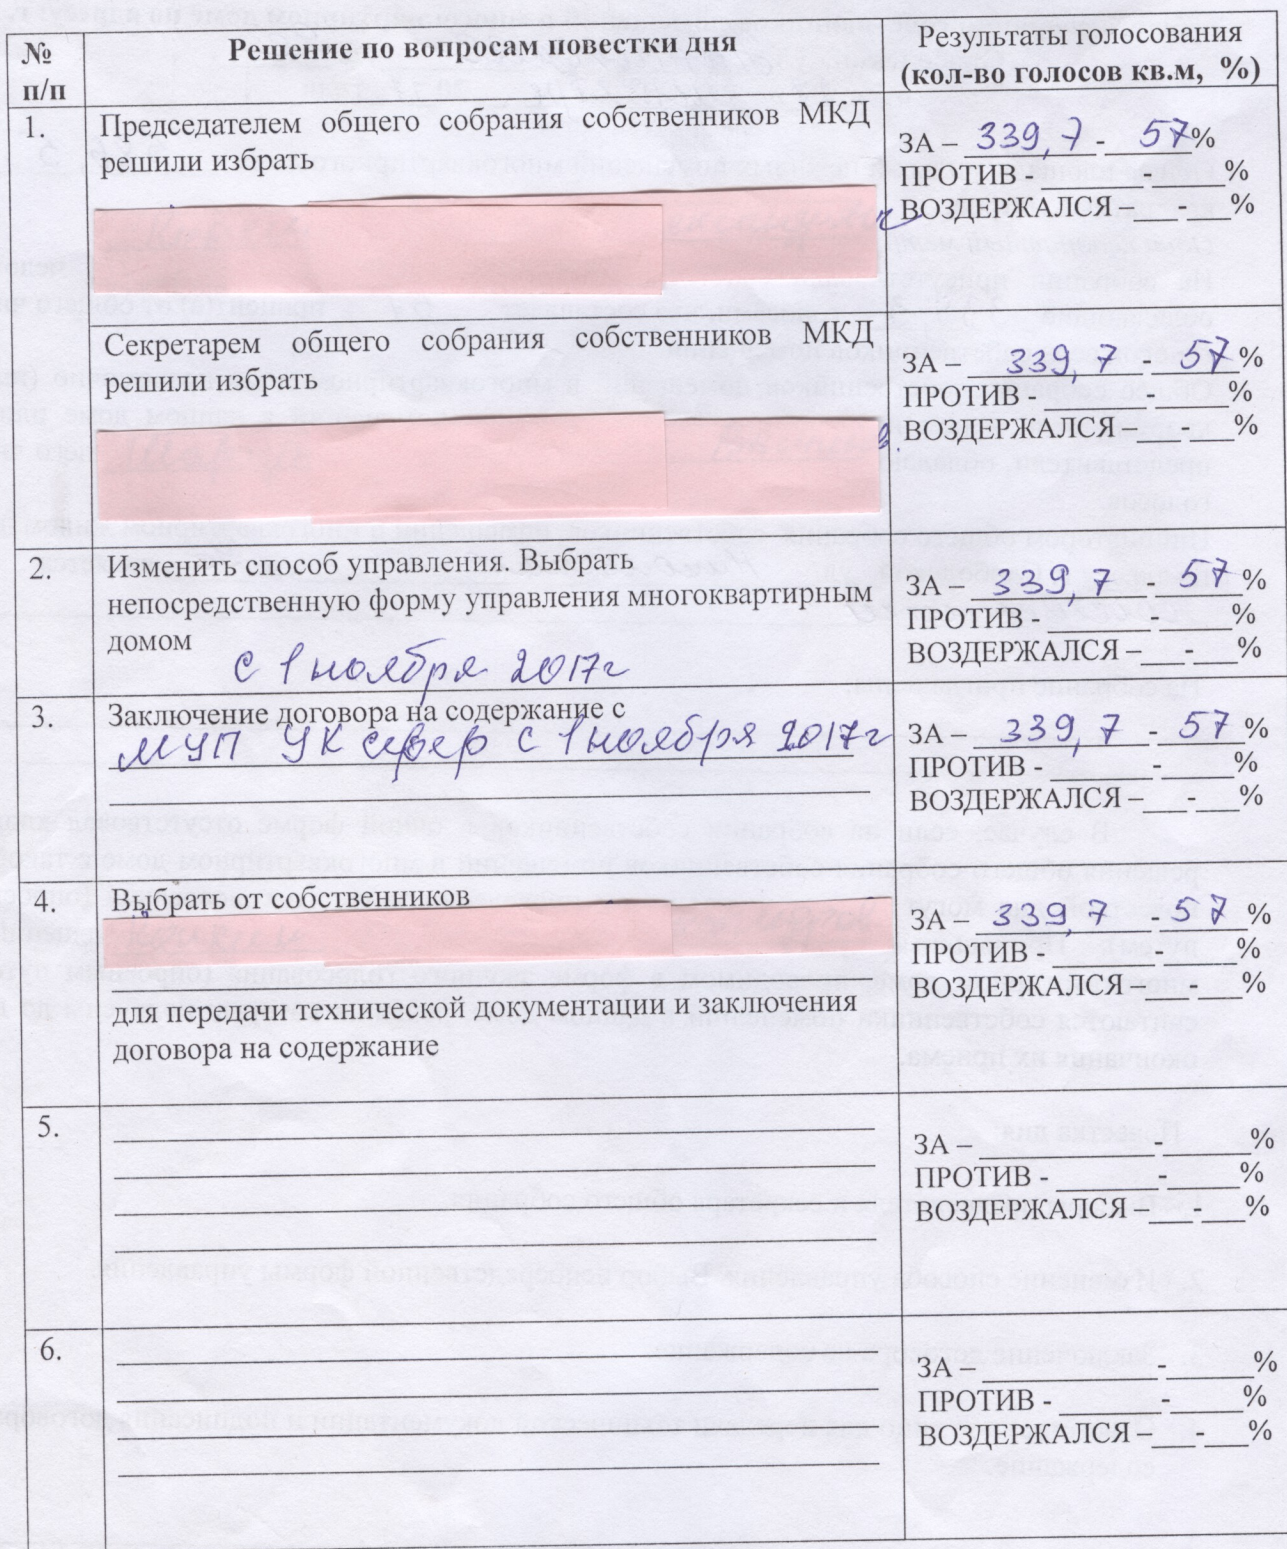 № п/п
Решение по вопросам повестки дня
Результаты голосования
(кол-во голосов кв.м, %)
1.
Председателем общего собрания собственников МКД
решили избрать
ЗА – 339,7 - 57%
ПРОТИВ - ______%
ВОЗДЕРЖАЛСЯ – __-__%
Секретарем общего собрания собственников МКД
решили избрать
ЗА – 339,7 - 57%
ПРОТИВ - ______-______%
ВОЗДЕРЖАЛСЯ – __-__%
2.
Изменить способ управления. Выбрать
непосредственную форму управления многоквартирным
домом
с 1 ноября 2017г
ЗА – 339,7 - 57%
ПРОТИВ - ______-______%
ВОЗДЕРЖАЛСЯ – __-__%
3.
Заключение договора на содержание с
МУП УК север с 1 ноября 2017г
ЗА – 339,7 - 57%
ПРОТИВ - ______-______%
ВОЗДЕРЖАЛСЯ – __-__%
4.
Выбрать от собственников
для передачи технической документации и заключения
договора на содержание
ЗА – 339,7 - 57%
ПРОТИВ - ______-______%
ВОЗДЕРЖАЛСЯ - __-__%
5.
ЗА – ______-______%
ПРОТИВ - ______-______%
ВОЗДЕРЖАЛСЯ – __-__%
6.
ЗА – ______-______%
ПРОТИВ - ______-______%
ВОЗДЕРЖАЛСЯ - __-__%